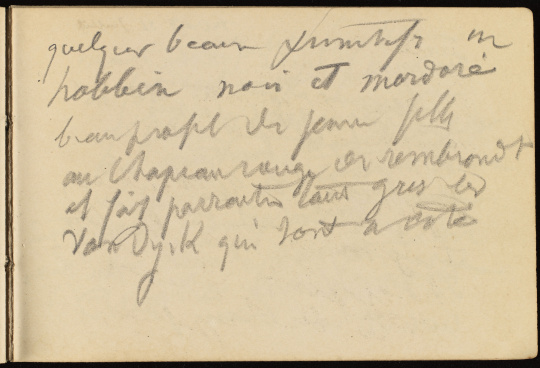 quelques beaux primitifs un
hobbéma noir et mordoré
beau profil de jeune fille
au chapeau rouge de rembrandt
et fait paraître tout gris les
Van Dyck qui sont à côté